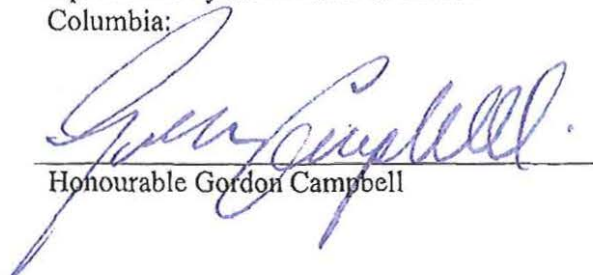 Columbia:
Gordon Campbell
Honourable Gordon Campbell